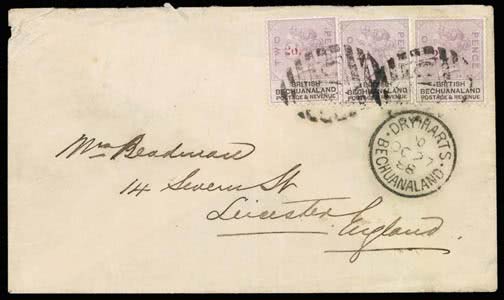 TWO PENCE TWO PENCE TWO PENCE
2d.
BRITISH BRITISH BRITISH
BECHUANALAND BECHUANALAND BECHUANALAND
POSTAGE & REVENUE POSTAGE & REVENUE POSTAGE & REVENUE
DRY-HARTS
BECHUANALAND
Mrs Beadman
14 Severn St
Leicester
England.